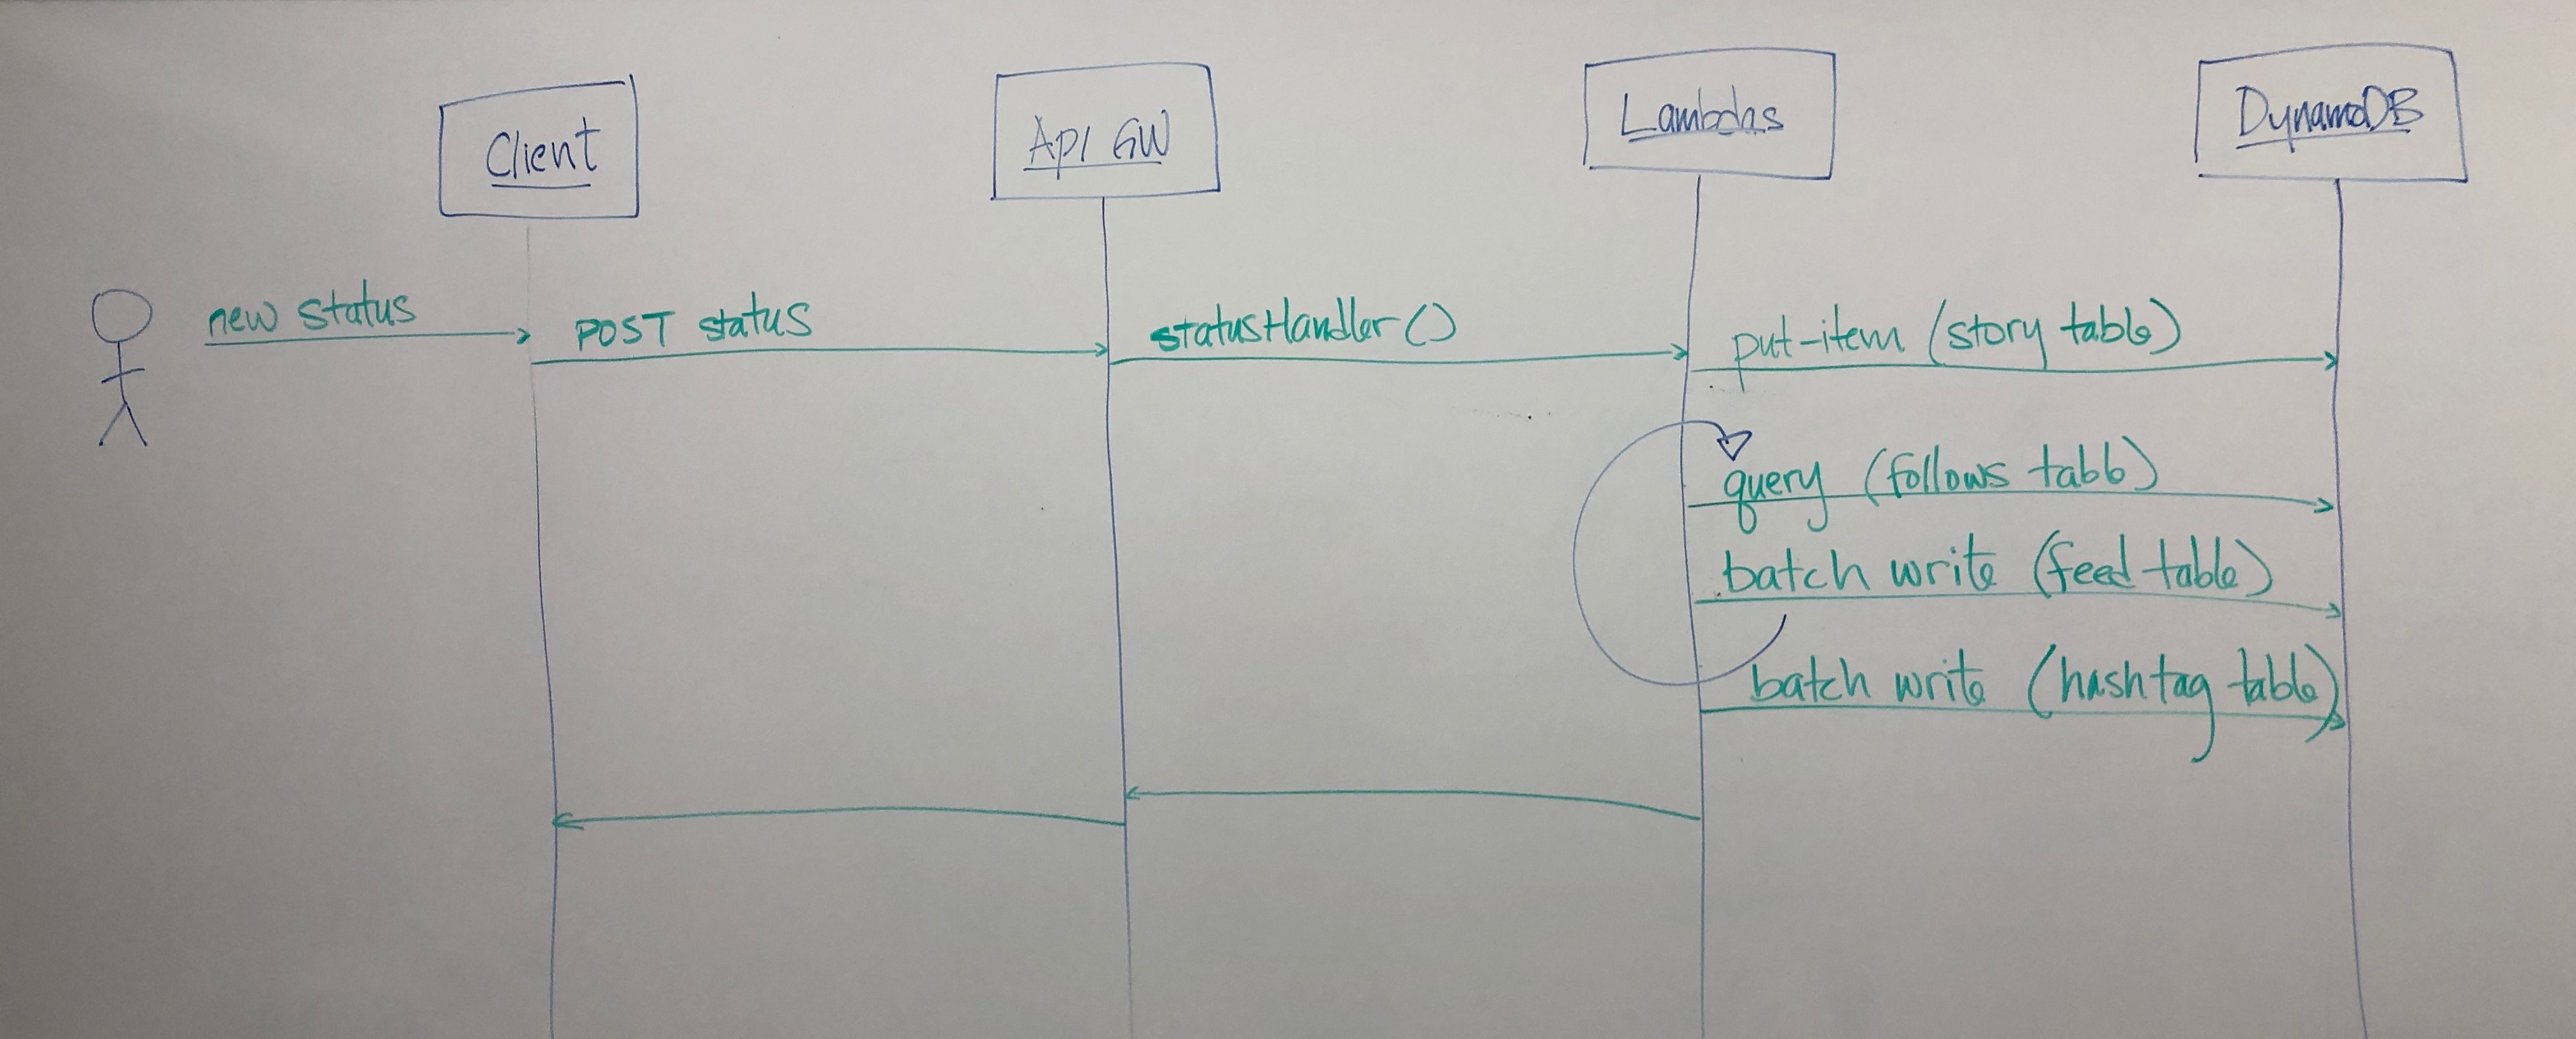 Client
Api GW
Lambdas
DynamoDB
new status
POST status
statusHandler()
put-item (story table)
query (follows table)
batch write (feed table)
batch write (hashtag table)